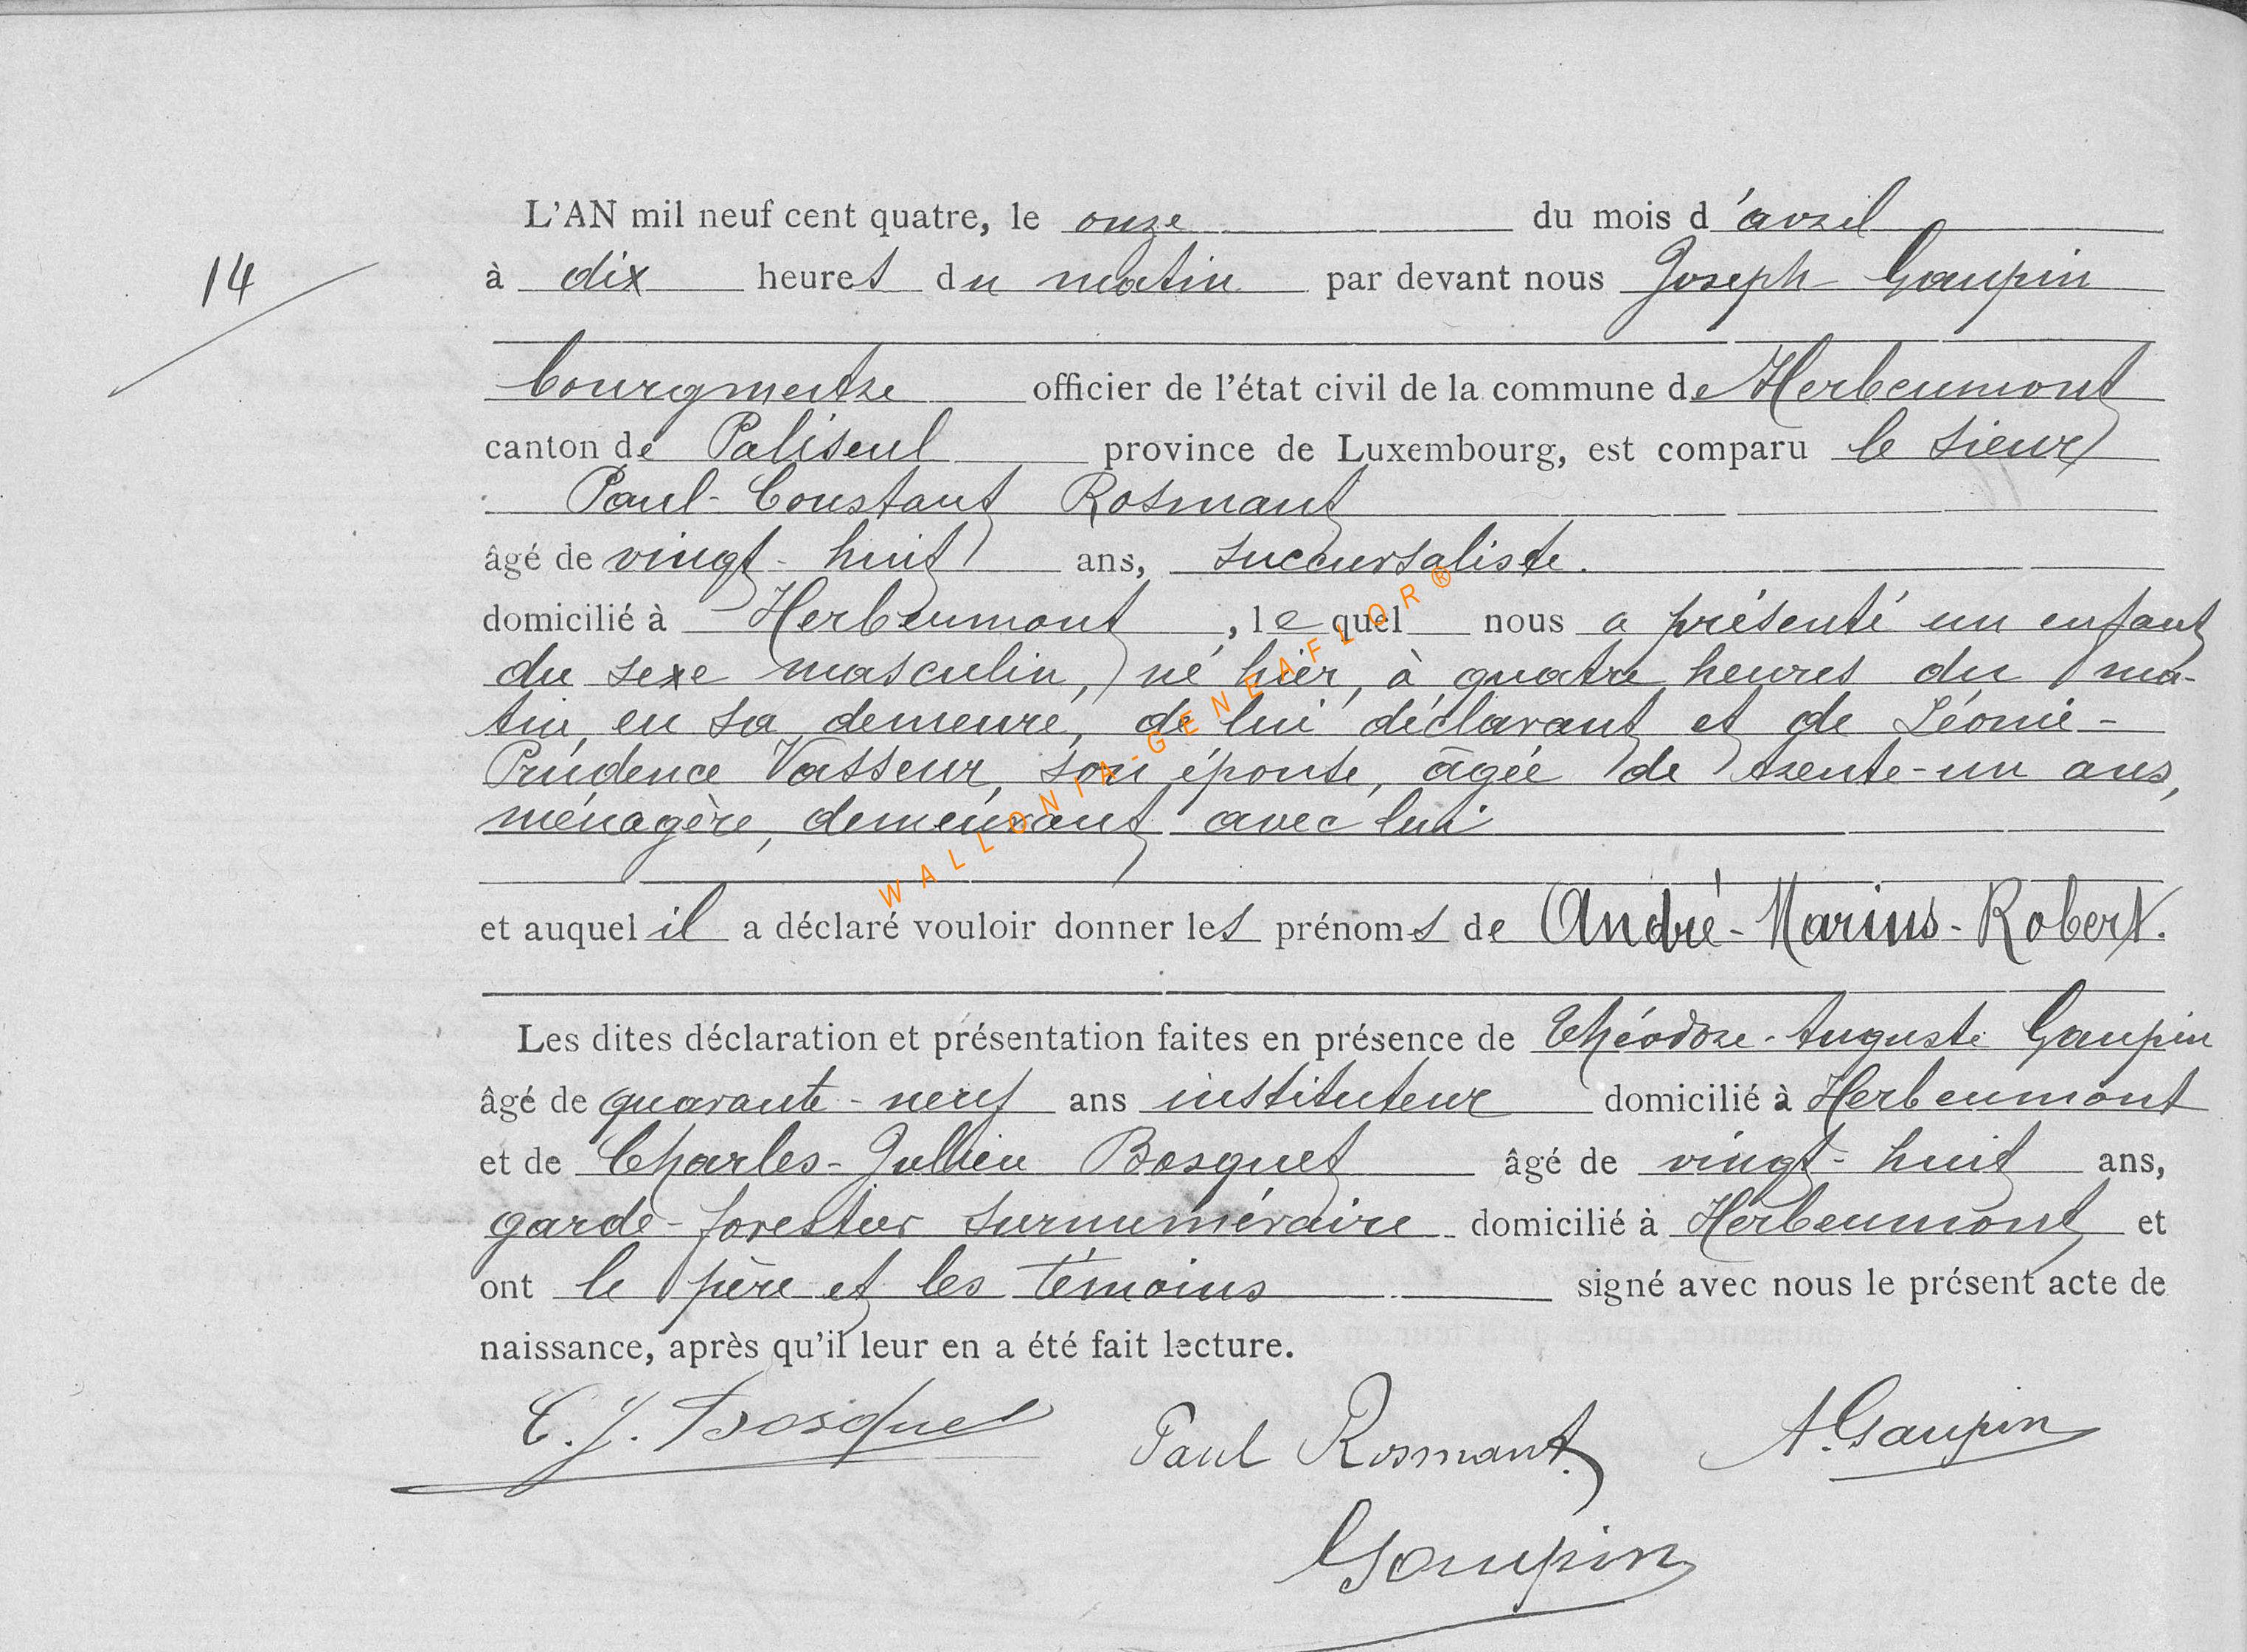 L'AN mil neuf cent quatre, le onze du mois d'avril
14
à dix heures du matin par devant nous Joseph Gaupin
bourgmestre officier de l'état civil de la commune de Herbeumont
canton de Paliseul province de Luxembourg, est comparu le sieur
Paul-Constant Rosmant
âgé de vingt-huit ans, succursaliste.
domicilié à Herbeumont, lequel nous a présenté un enfant
du sexe masculin, né hier, à quatre heures du ma-
tin, en sa demeure, de lui déclarant et de Léonie-
Prudence Vasseur, son épouse, âgée de trente-un ans,
ménagère, demeurant avec lui
et auquel il a déclaré vouloir donner les prénoms de André-Marius-Robert.
Les dites déclaration et présentation faites en présence de Théodore-Auguste Gaupin
âgé de quarante-neuf ans instituteur domicilié à Herbeumont
et de Charles-Jullien Bosquet âgé de vingt-huit ans,
garde-forestier surnuméraire domicilié à Herbeumont et
ont le père et les témoins signé avec nous le présent acte de
naissance, après qu'il leur en a été fait lecture.
C. J. Bosquet Paul Rosmant. A. Gaupin
Gaupin
WALLONIA-GENEAFLOR®